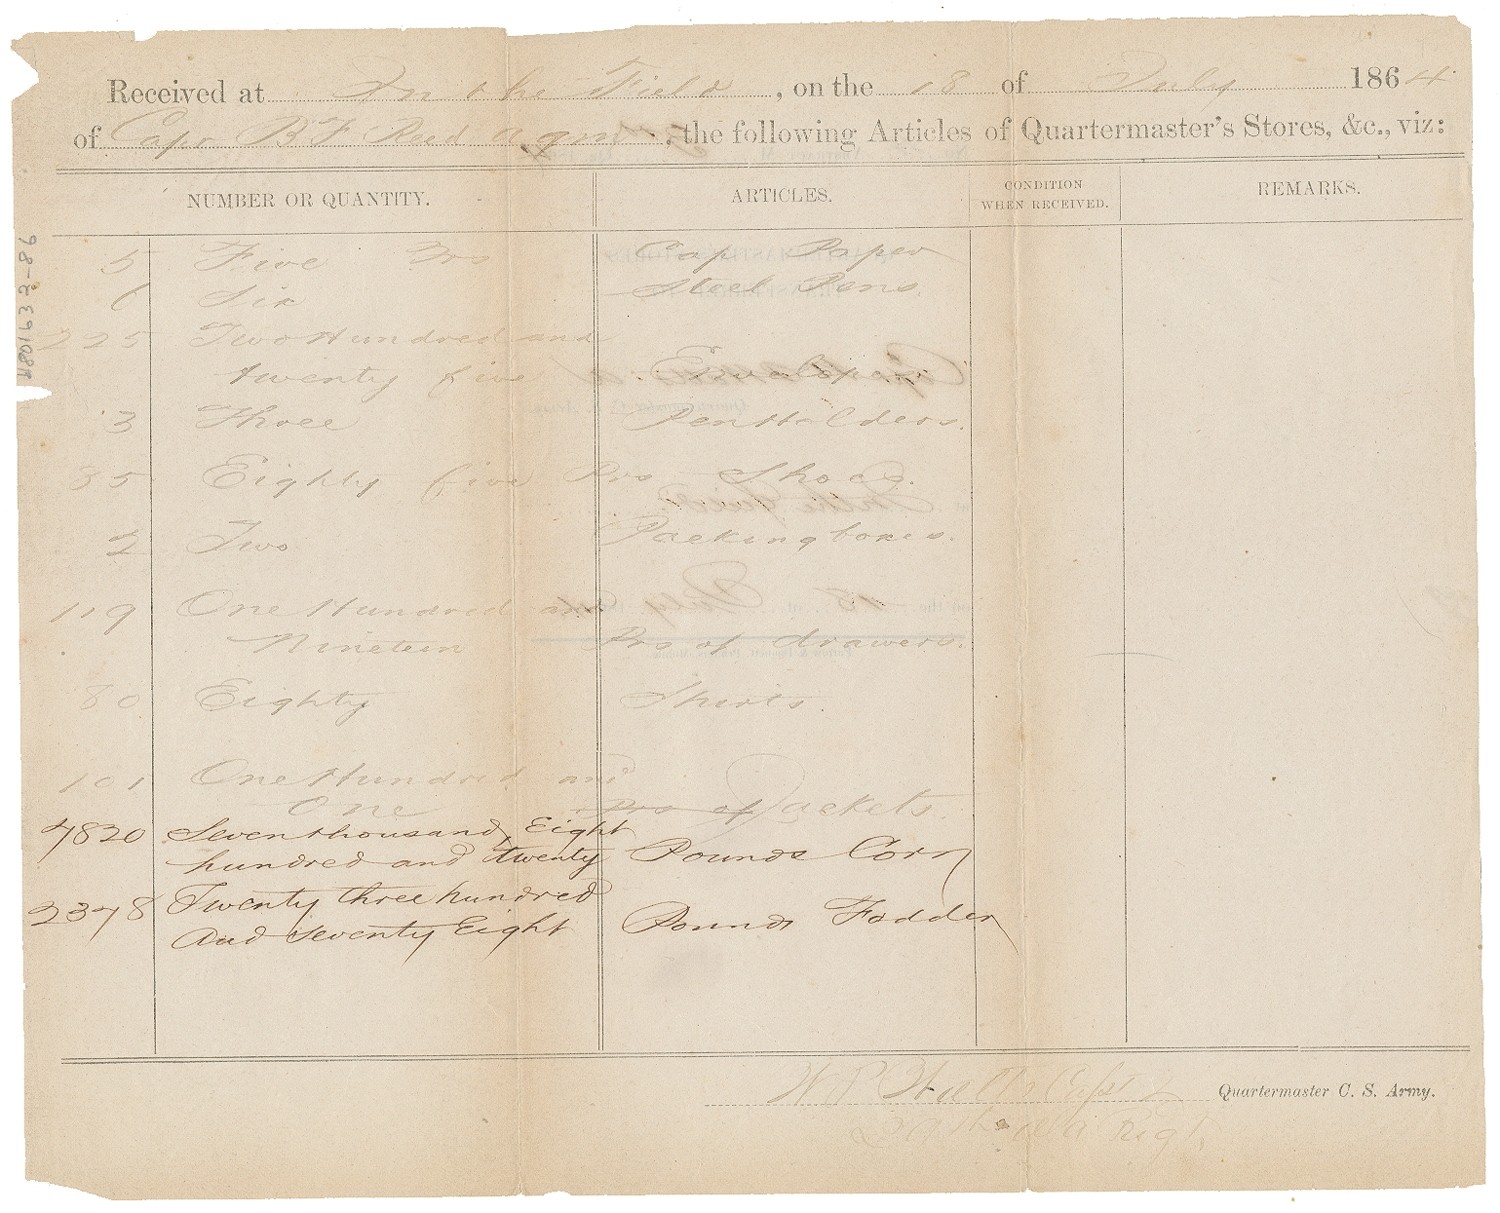 Received at In the Field, on the 18 of July 1864
of Capt B F Reed a q m, the following Articles of Quartermaster's Stores, &c., viz:
NUMBER OR QUANTITY. ARTICLES. CONDITION WHEN RECEIVED. REMARKS.
5 Five Qrs Cap Paper
6 Six Steel Pens
225 Two Hundred and
twenty five Envelopes
3 Three Pen Holders.
85 Eighty five Prs Shoes.
2 Two Packing boxes.
119 One Hundred and
Nineteen Prs of drawers.
80 Eighty Shirts.
101 One Hundred and
One Prs of Jackets.
7820 Seven thousand, Eight
hundred and twenty Pounds Corn
2378 Twenty three hundred
And Seventy Eight Pounds Fodder
W P Capt &
Quartermaster C. S. Army.
Ala Regt.
H80163 2-86